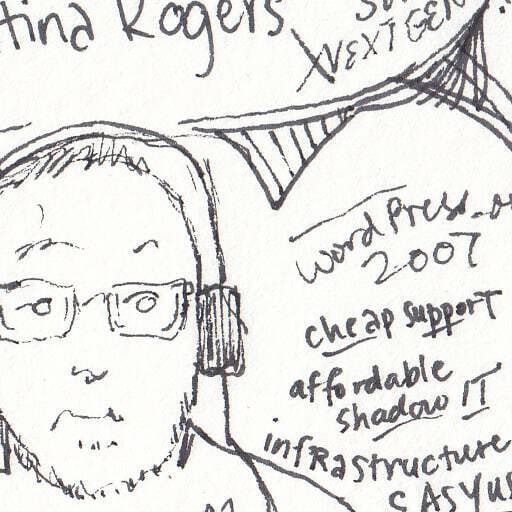 tina Rogers
NEXT GEN
WordPress.o
2007
cheap support
affordable
shadow IT
infrastructure